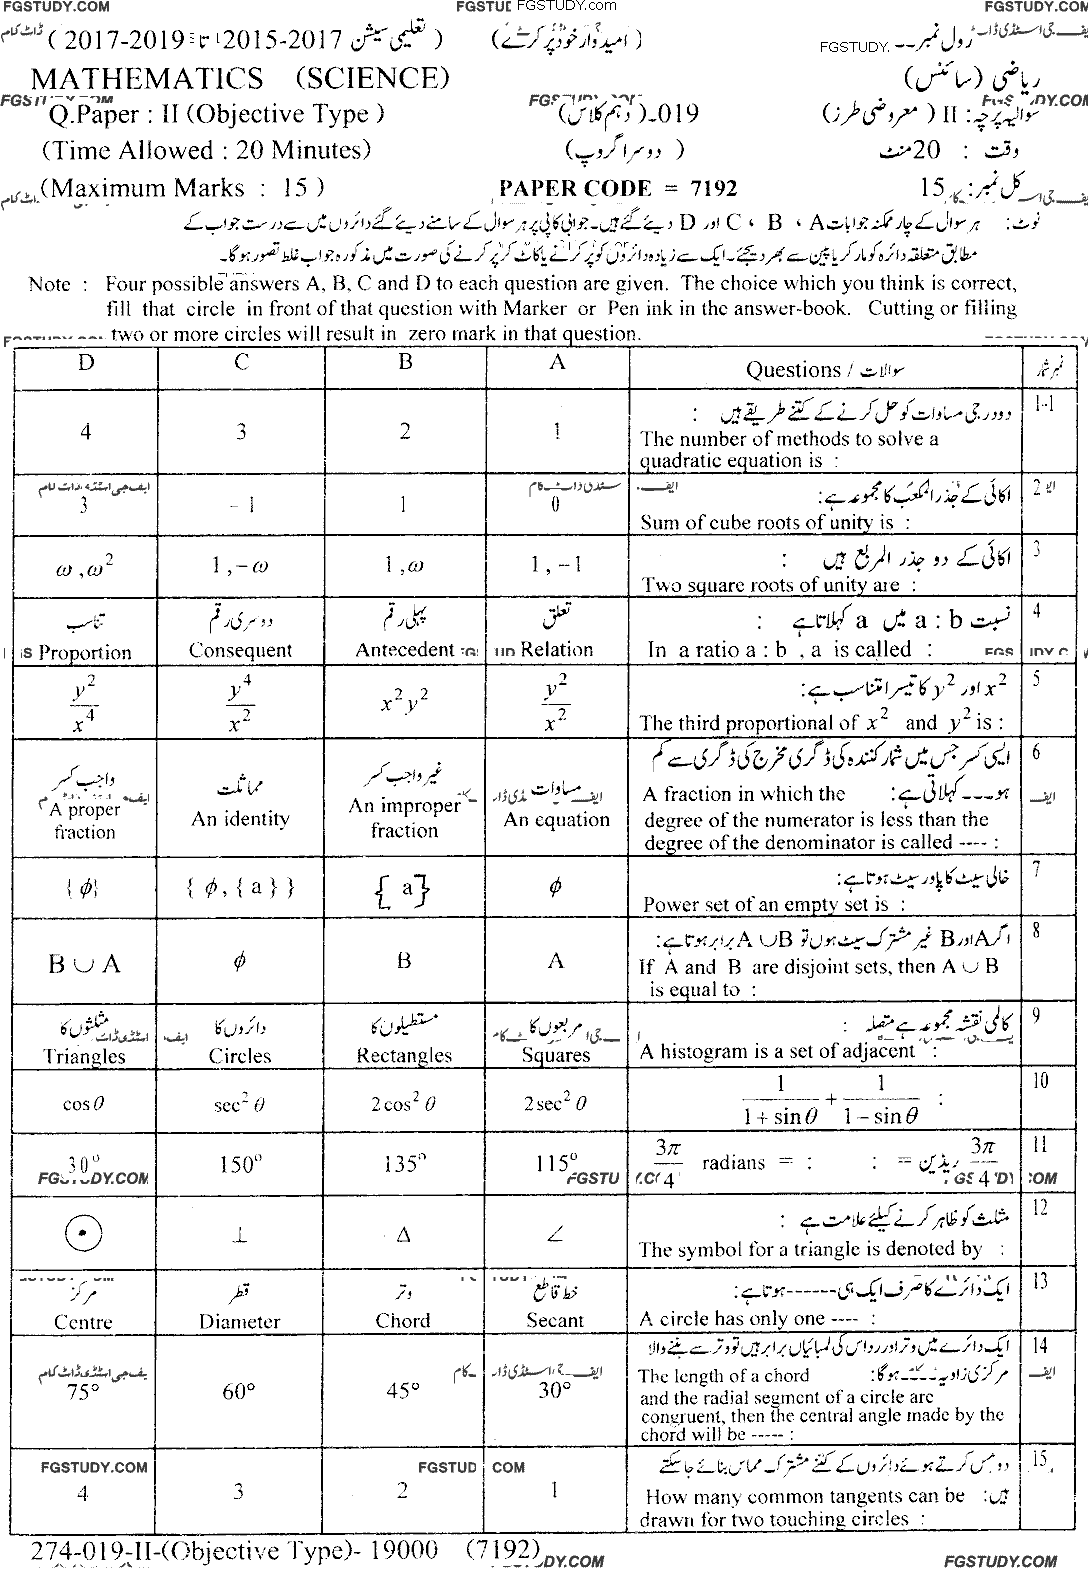 FGSTUDY.COM FGSTUDY.COM FGSTUDY.COM
رول نمبر -- (امیدوار خود پُر کرے) (تعلیمی سیشن 2017-2015 تا 2019-2017)
MATHEMATICS (SCIENCE) ریاضی (سائنس)
Q.Paper : II (Objective Type ) 019-(دہم کلاس) سوالیہ پرچہ : II (معروضی طرز)
(Time Allowed : 20 Minutes) (دوسرا گروپ) وقت : 20 منٹ
(Maximum Marks : 15 ) PAPER CODE = 7192 کل نمبر : 15
نوٹ : ہر سوال کے چار ممکنہ جوابات A ، B ، C اور D دیئے گئے ہیں۔ جوابی کاپی پر ہر سوال کے سامنے دیئے گئے دائروں میں سے درست جواب کے
مطابق متعلقہ دائرہ کو مارکر یا پین سے بھر دیجئے۔ ایک سے زیادہ دائروں کو پُر کرنے یا کاٹ کر پُر کرنے کی صورت میں مذکورہ جواب غلط تصور ہوگا۔
Note : Four possible answers A, B, C and D to each question are given. The choice which you think is correct,
fill that circle in front of that question with Marker or Pen ink in the answer-book. Cutting or filling
two or more circles will result in zero mark in that question.
D C B A Questions / سوالات نمبر شمار
دو درجی مساوات کو حل کرنے کے کتنے طریقے ہیں : 1-1
4 3 2 1 The number of methods to solve a
quadratic equation is :
اکائی کے جذر المکعب کا مجموعہ ہے: 2
3 - 1 1 0 Sum of cube roots of unity is :
اکائی کے دو جذر المربع ہیں : 3
ω , ω² 1 , -ω 1 , ω 1 , -1 Two square roots of unity are :
تناسب دوسری رقم پہلی رقم تعلق نسبت a : b میں a کہلاتا ہے : 4
Proportion Consequent Antecedent Relation In a ratio a : b , a is called :
x² اور y² کا تیسرا متناسب ہے: 5
y²/x⁴ y⁴/x² x²y² y²/x² The third proportional of x² and y² is :
ایسی کسر جس میں شمار کنندہ کی ڈگری مخرج کی ڈگری سے کم 6
واجب کسر مماثلت غیر واجب کسر مساوات ہو --- کہلاتی ہے:
A proper fraction An identity An improper fraction An equation A fraction in which the
degree of the numerator is less than the
degree of the denominator is called ---- :
خالی سیٹ کا پاور سیٹ ہوتا ہے: 7
{ϕ} {ϕ, {a}} {a} ϕ Power set of an empty set is :
اگر A اور B غیر مشترک سیٹ ہوں تو A ∪ B برابر ہوتا ہے: 8
B ∪ A ϕ B A If A and B are disjoint sets, then A ∪ B
is equal to :
مثلثوں کا دائروں کا مستطیلوں کا مربعوں کا کالمی نقشہ مجموعہ ہے متصلہ : 9
Triangles Circles Rectangles Squares A histogram is a set of adjacent :
cosθ sec²θ 2cos²θ 2sec²θ 1/(1+sinθ) + 1/(1-sinθ) : 10
30° 150° 135° 115° 3π/4 radians = : 3π/4 ریڈین = : 11
مثلث کو ظاہر کرنے کیلئے علامت ہے : 12
⊙ ⊥ Δ ∠ The symbol for a triangle is denoted by :
مرکز قطر وتر خط قاطع ایک دائرے کا صرف ایک ہی ------ ہوتا ہے: 13
Centre Diameter Chord Secant A circle has only one ---- :
ایک دائرے میں وتر اور رداس کی لمبائیاں برابر ہیں تو وتر سے بننے والا 14
مرکزی زاویہ ہوگا:
75° 60° 45° 30° The length of a chord
and the radial segment of a circle are
congruent, then the central angle made by the
chord will be ----- :
دو مس کرتے ہوئے دائروں کے کتنے مشترک مماس بنائے جا سکتے 15
FGSTUDY.COM
4 3 2 1 How many common tangents can be ہیں:
drawn for two touching circles :
274-019-II-(Objective Type)- 19000 (7192) FGSTUDY.COM